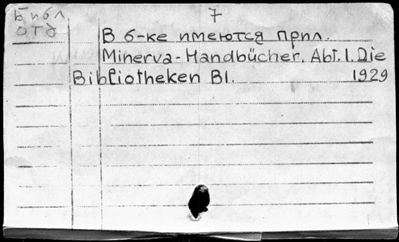 Библ. 7
отд
В б-ке имеются прил.
Minerva-Handbücher. Abt. I. Die
Bibliotheken Bl. 1929